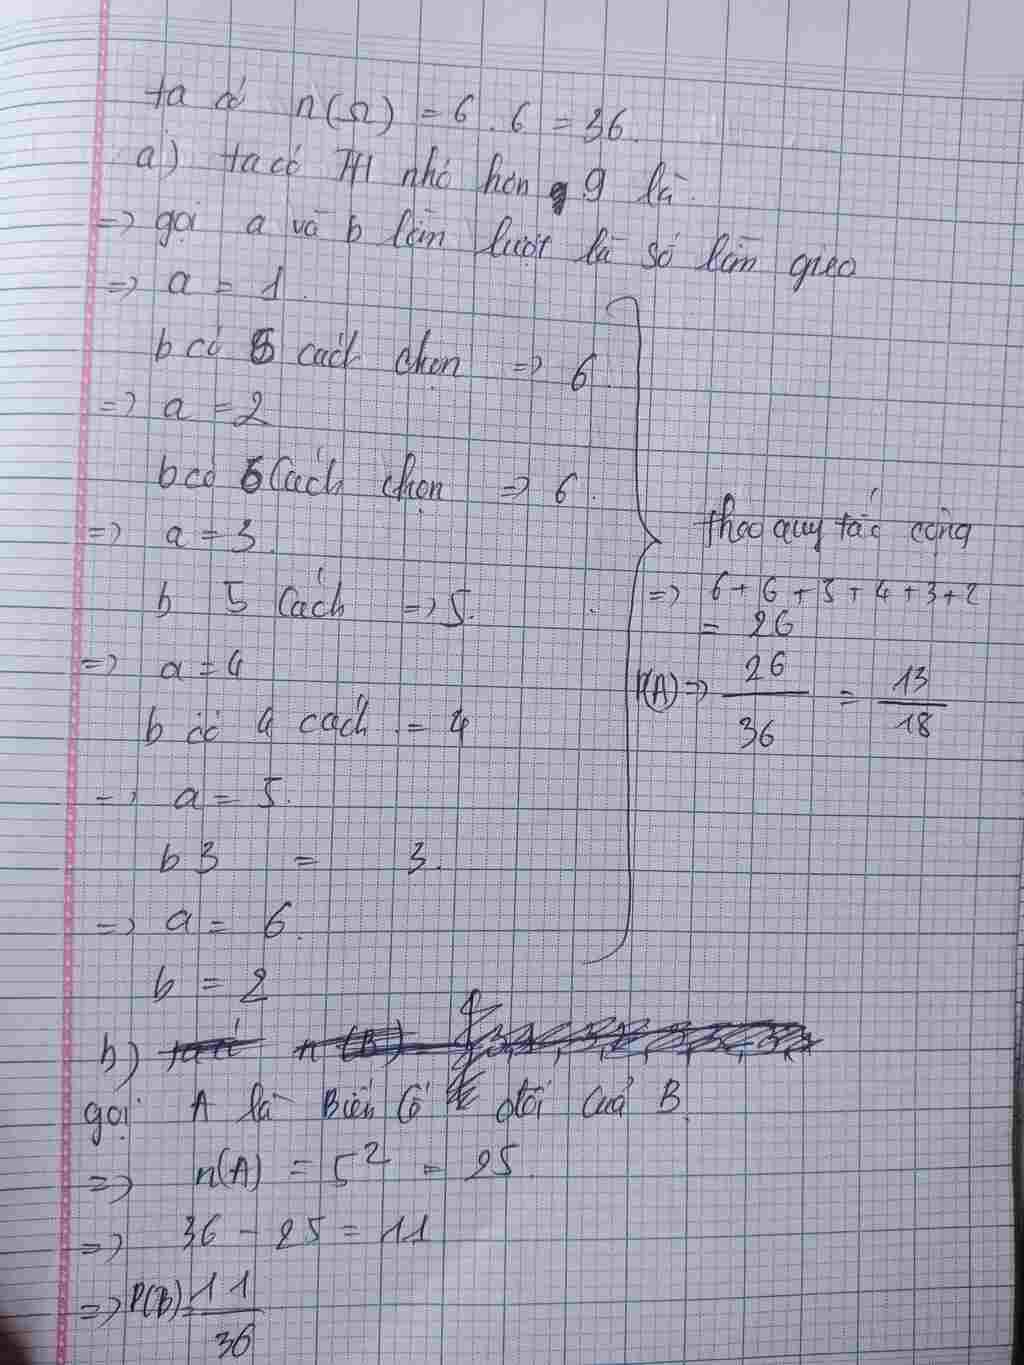 ta có n(Ω) = 6 . 6 = 36.
a) ta có TH nhỏ hơn 9 là.
=> gọi a và b lần lượt là số lần gieo
=> a = 1.
b có 6 cách chọn => 6.
=> a = 2
b có 6 cách chọn => 6.
=> a = 3.
b 5 cách => 5.
=> a = 4
b có 4 cách = 4
=> a = 5.
b 3 = 3.
=> a = 6.
b = 2
theo quy tắc cộng
=> 6 + 6 + 5 + 4 + 3 + 2
= 26
P(A) => 26/36 = 13/18
b)
gọi A là Biến Cố đối của B.
=> n(A) = 5² = 25.
=> 36 - 25 = 11
=> P(B) = 11/36